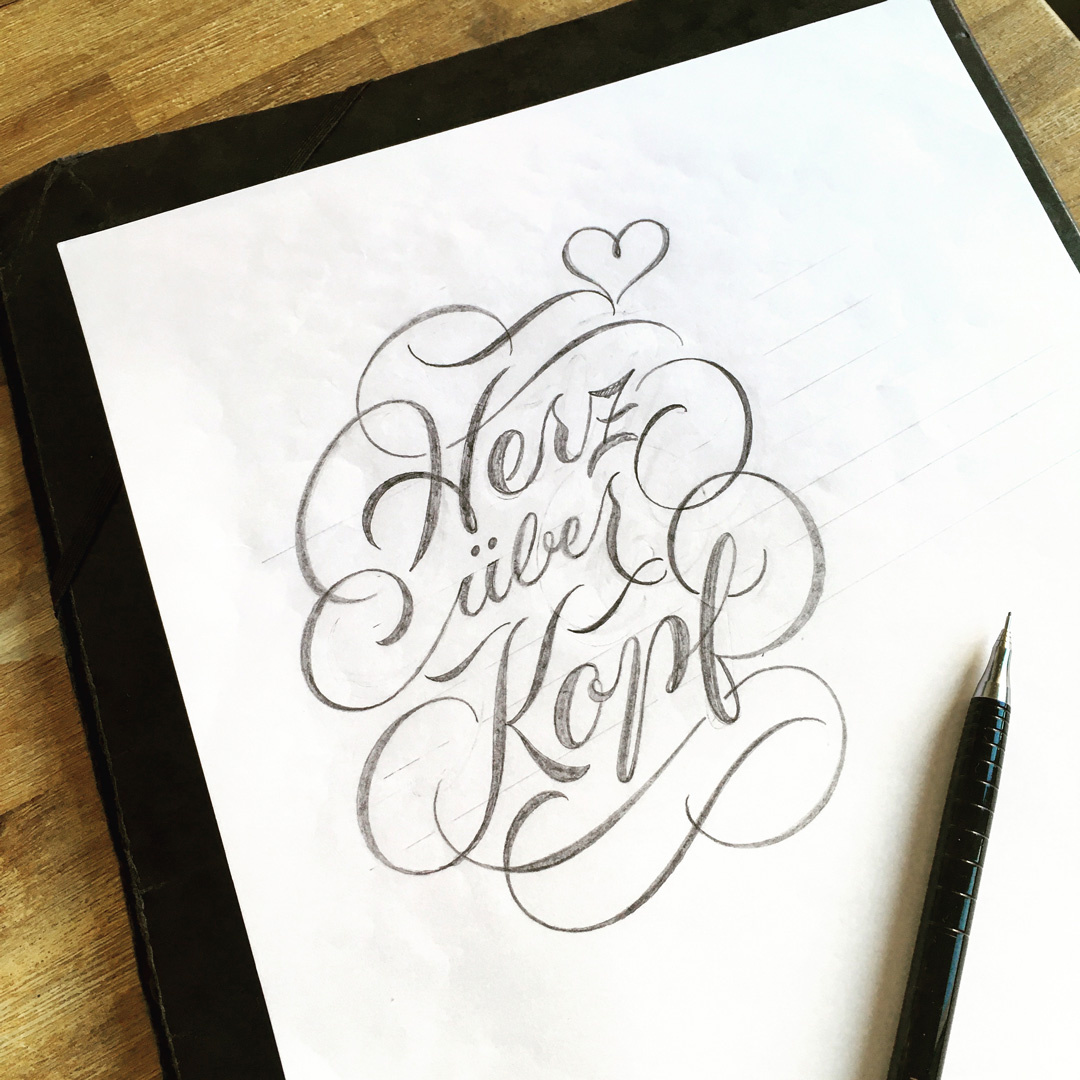 Herz
über
Kopf